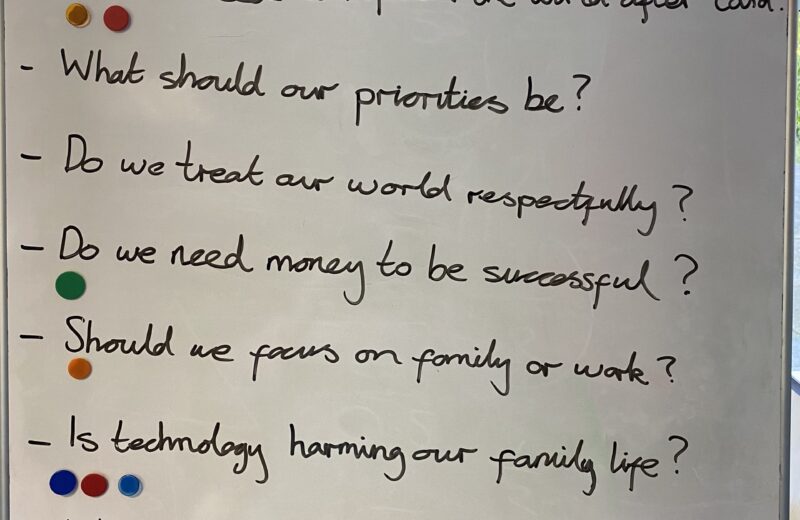 the world after Covid.
- What should our priorities be?
- Do we treat our world respectfully?
- Do we need money to be successful?
- Should we focus on family or work?
- Is technology harming our family life?